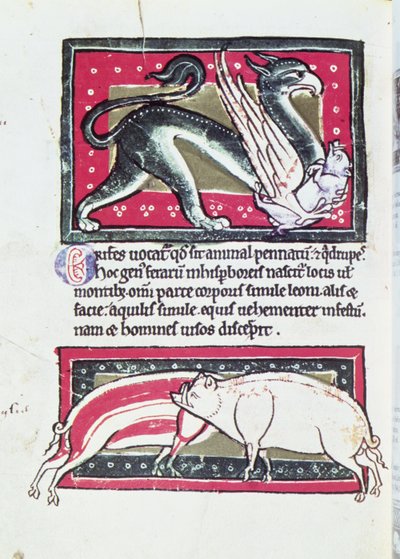 Grifes uocat̄ qd̄ sit animal pennatū ⁊ qdrupe
Hoc gen ferarū inhipboreis nascit̄ locis ul
montib; omī parte corporis simile leoni alis &
facie aquilis simile equis uehementer infestū
nam & homines uisos discerpit.